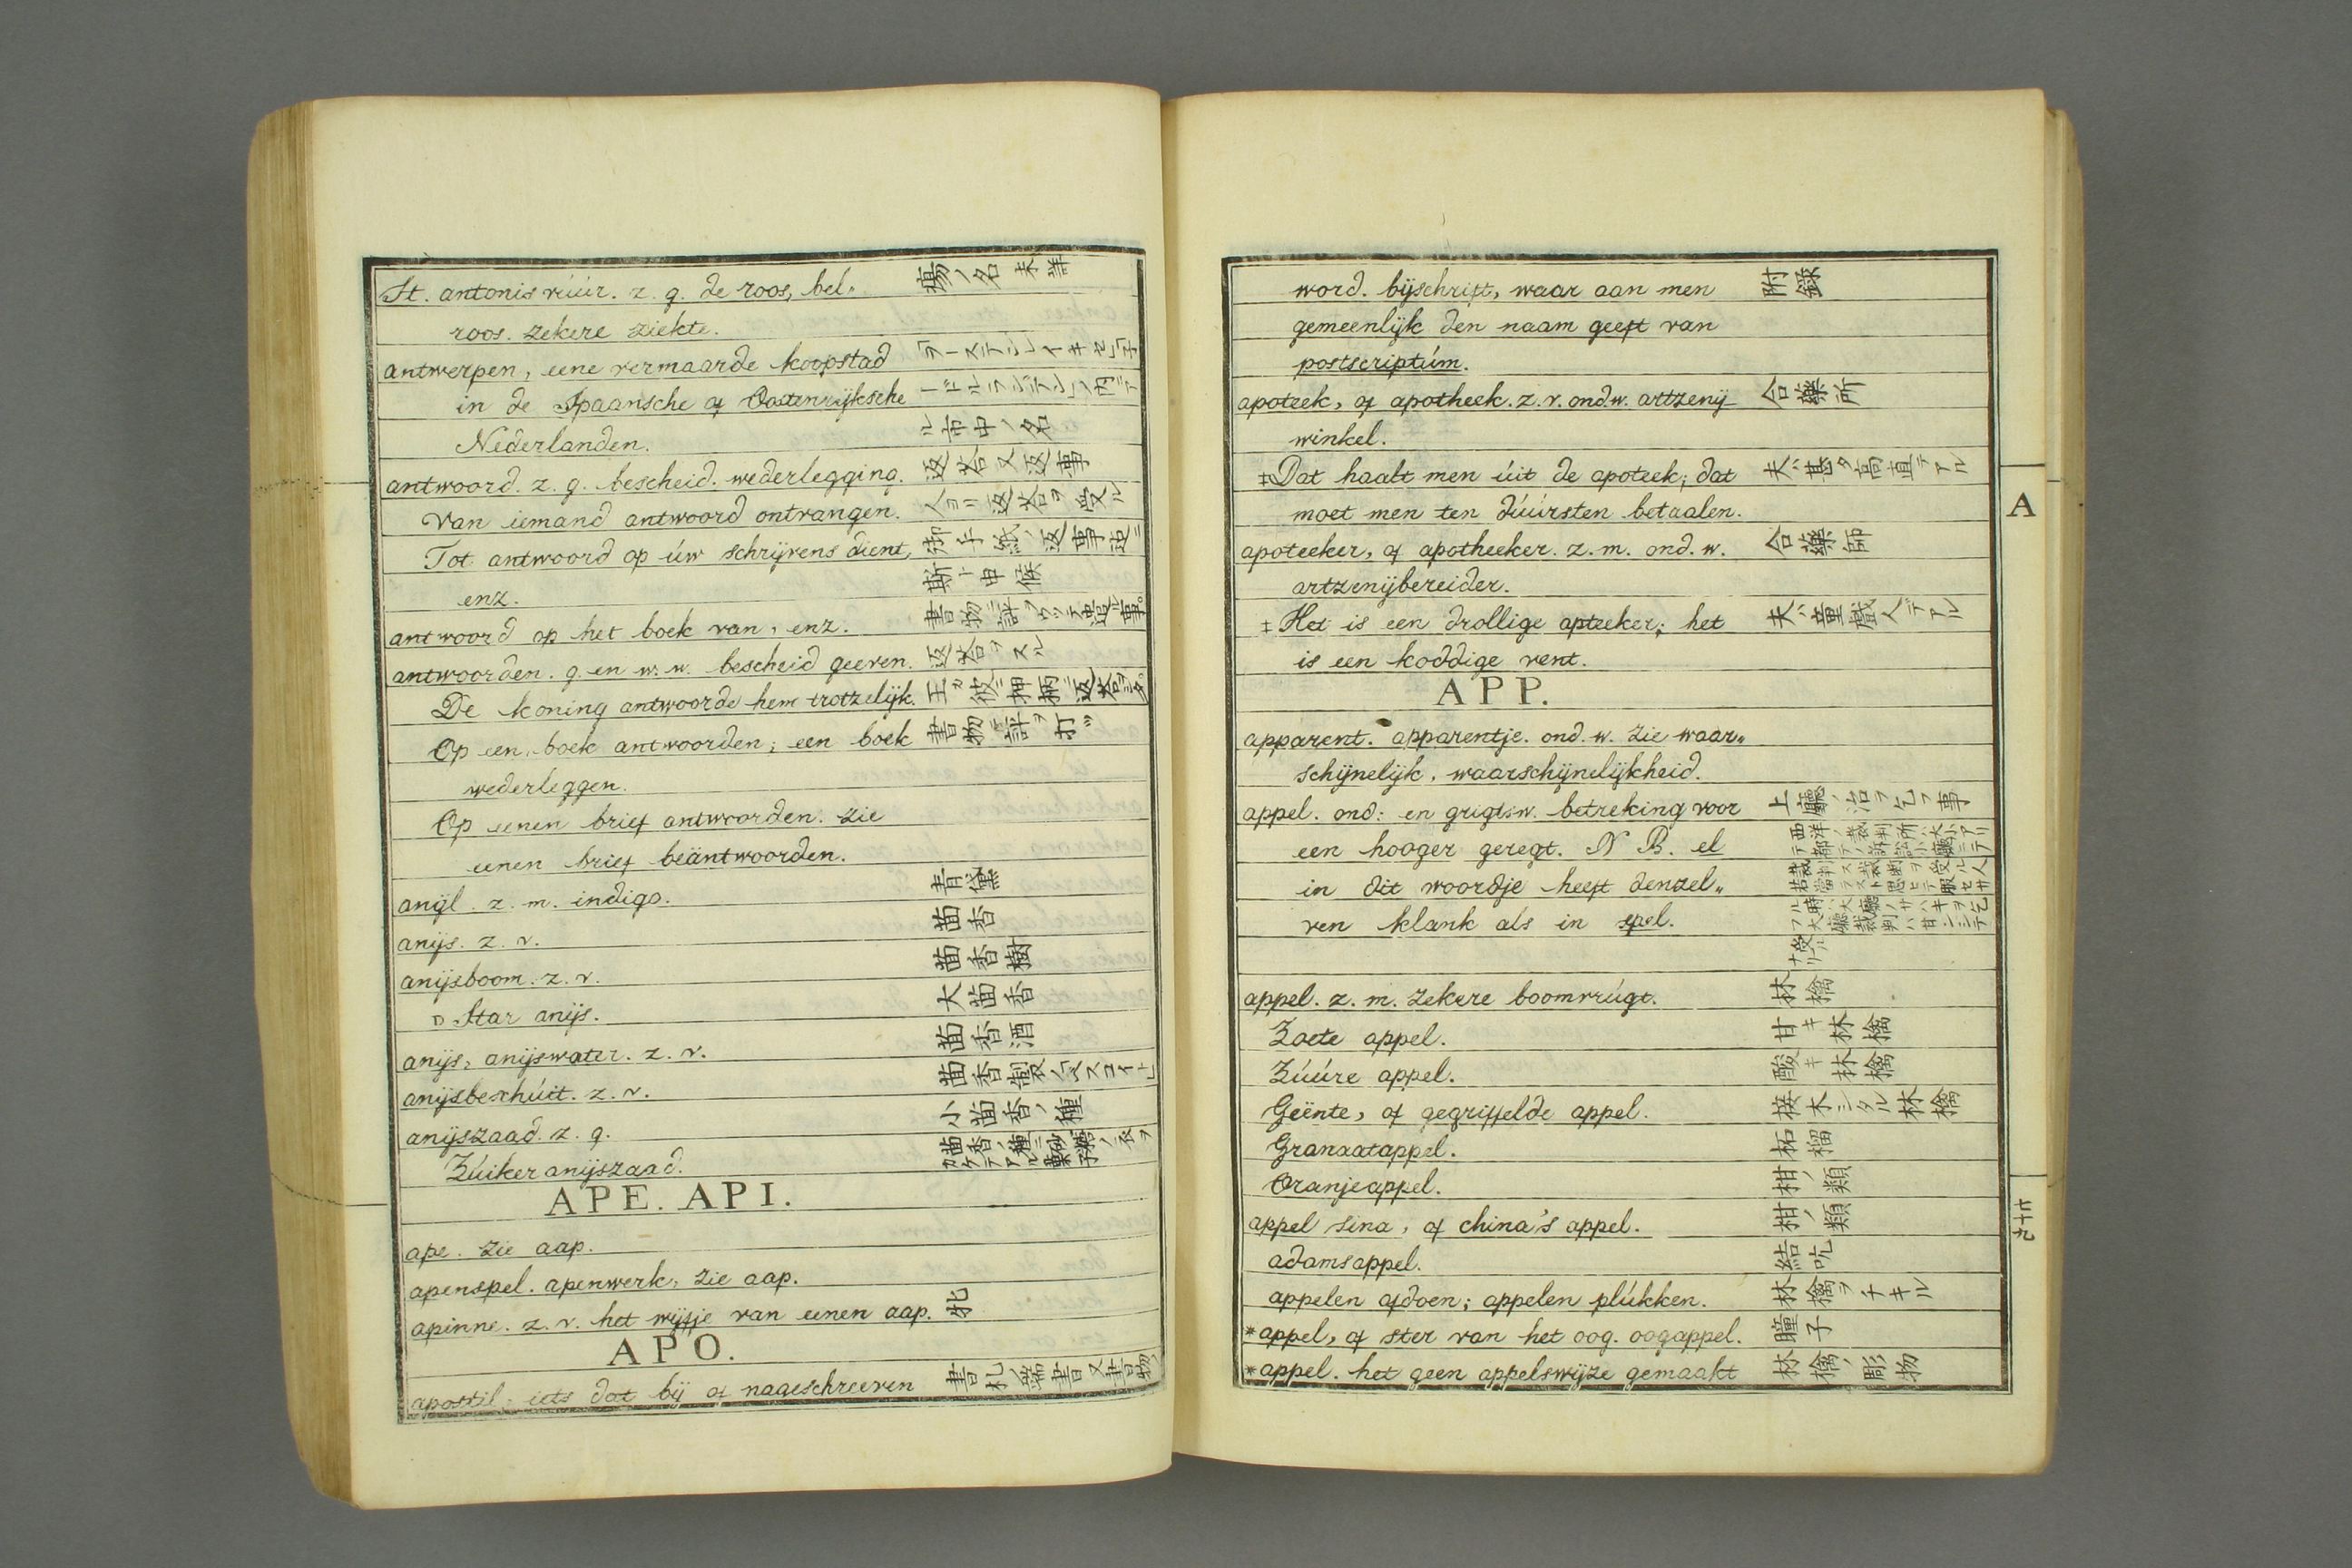 St. antonis vúúr. z. g. de roos, bel„ 瘍ノ名 未詳
roos. zekere ziekte.
antwerpen, eene vermaarde koopstad
in de Spaansche of Oostenrijksche
Nederlanden. ル市中ノ名
antwoord. z. g. bescheid. wederlegging. 返答又返事
Van iemand antwoord ontvangen. 人ヨリ返答ヲ受ル
Tot antwoord op úw schrijvens dient, 御手紙ノ返事
enz. 斯ト申候
antwoord op het boek van, enz.
antwoorden. g. en w. w. bescheid geeven. 返答ヲスル
De koning antwoorde hem trotzelijk. 王ガ彼ニ押柄ニ返答ヲシタ。
Op een boek antwoorden; een boek 書物ニ評ヲ打ツ
wederleggen.
Op eenen brief antwoorden. zie
eenen brief beäntwoorden.
anijl. z. m. indigo. 青黛
anijs. z. v. 茴香
anijsboom. z. v. 茴香樹
D Star anijs. 大茴香
anijs, anijswater. z. v. 茴香酒
anijsbeschúit. z. v. 茴香製ノ
anijszaad. z. g. 小茴香ノ種
Zúiker anijszaad. 茴香ノ種ニ砂糖ノ衣ヲカケテアル菓子
APE. API.
ape. zie aap.
apenspel. apenwerk, zie aap.
apinne. z. v. het wijfje van eenen aap. 牝
APO.
apostil. iets dat bij of nageschreeven
word. bijschrift, waar aan men 附録
gemeenlijk den naam geeft van
postscriptúm.
apoteek, of apotheek. z. v. ond. w. artzenij- 合藥所
winkel.
‡Dat haalt men úit de apoteek; dat 夫ハ甚タ高直デアル
moet men ten dúúrsten betaalen.
apoteeker, of apotheeker. z. m. ond. w. 合藥師
artzenijbereider.
‡Het is een drollige apteeker; het 夫ハ童戲人デアル
is een koddige vent.
APP.
apparent. apparentje. ond. w. zie waar„
schijnelijk, waarschijnelijkheid.
appel. ond: en grigtsw. betreking voor 上廳ノ治ヲ乞フ事
een hooger geregt. N B. el
in dit woordje heeft denzel„
ven klank als in spel.
appel. z. m. zekere boomvrúgt. 林檎
Zoete appel. 甘キ林檎
Zúúre appel. 酸キ林檎
Geënte, of gegriffelde appel. 接木シタル林檎
Granaatappel. 柘榴
Oranjeappel. 柑ノ類
appel sina, of china's appel. 柑ノ類
adamsappel. 結吭
appelen afdoen; appelen plúkken. 林檎ヲチキル
*appel, of ster van het oog. oogappel. 瞳子
*appel. het geen appelswijze gemaakt 林檎ノ彫物
A